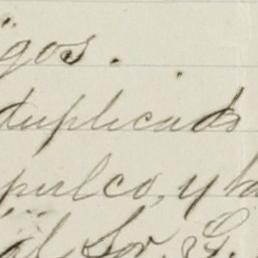 gos.
duplicado
pulco, y ha
al Sor. G.